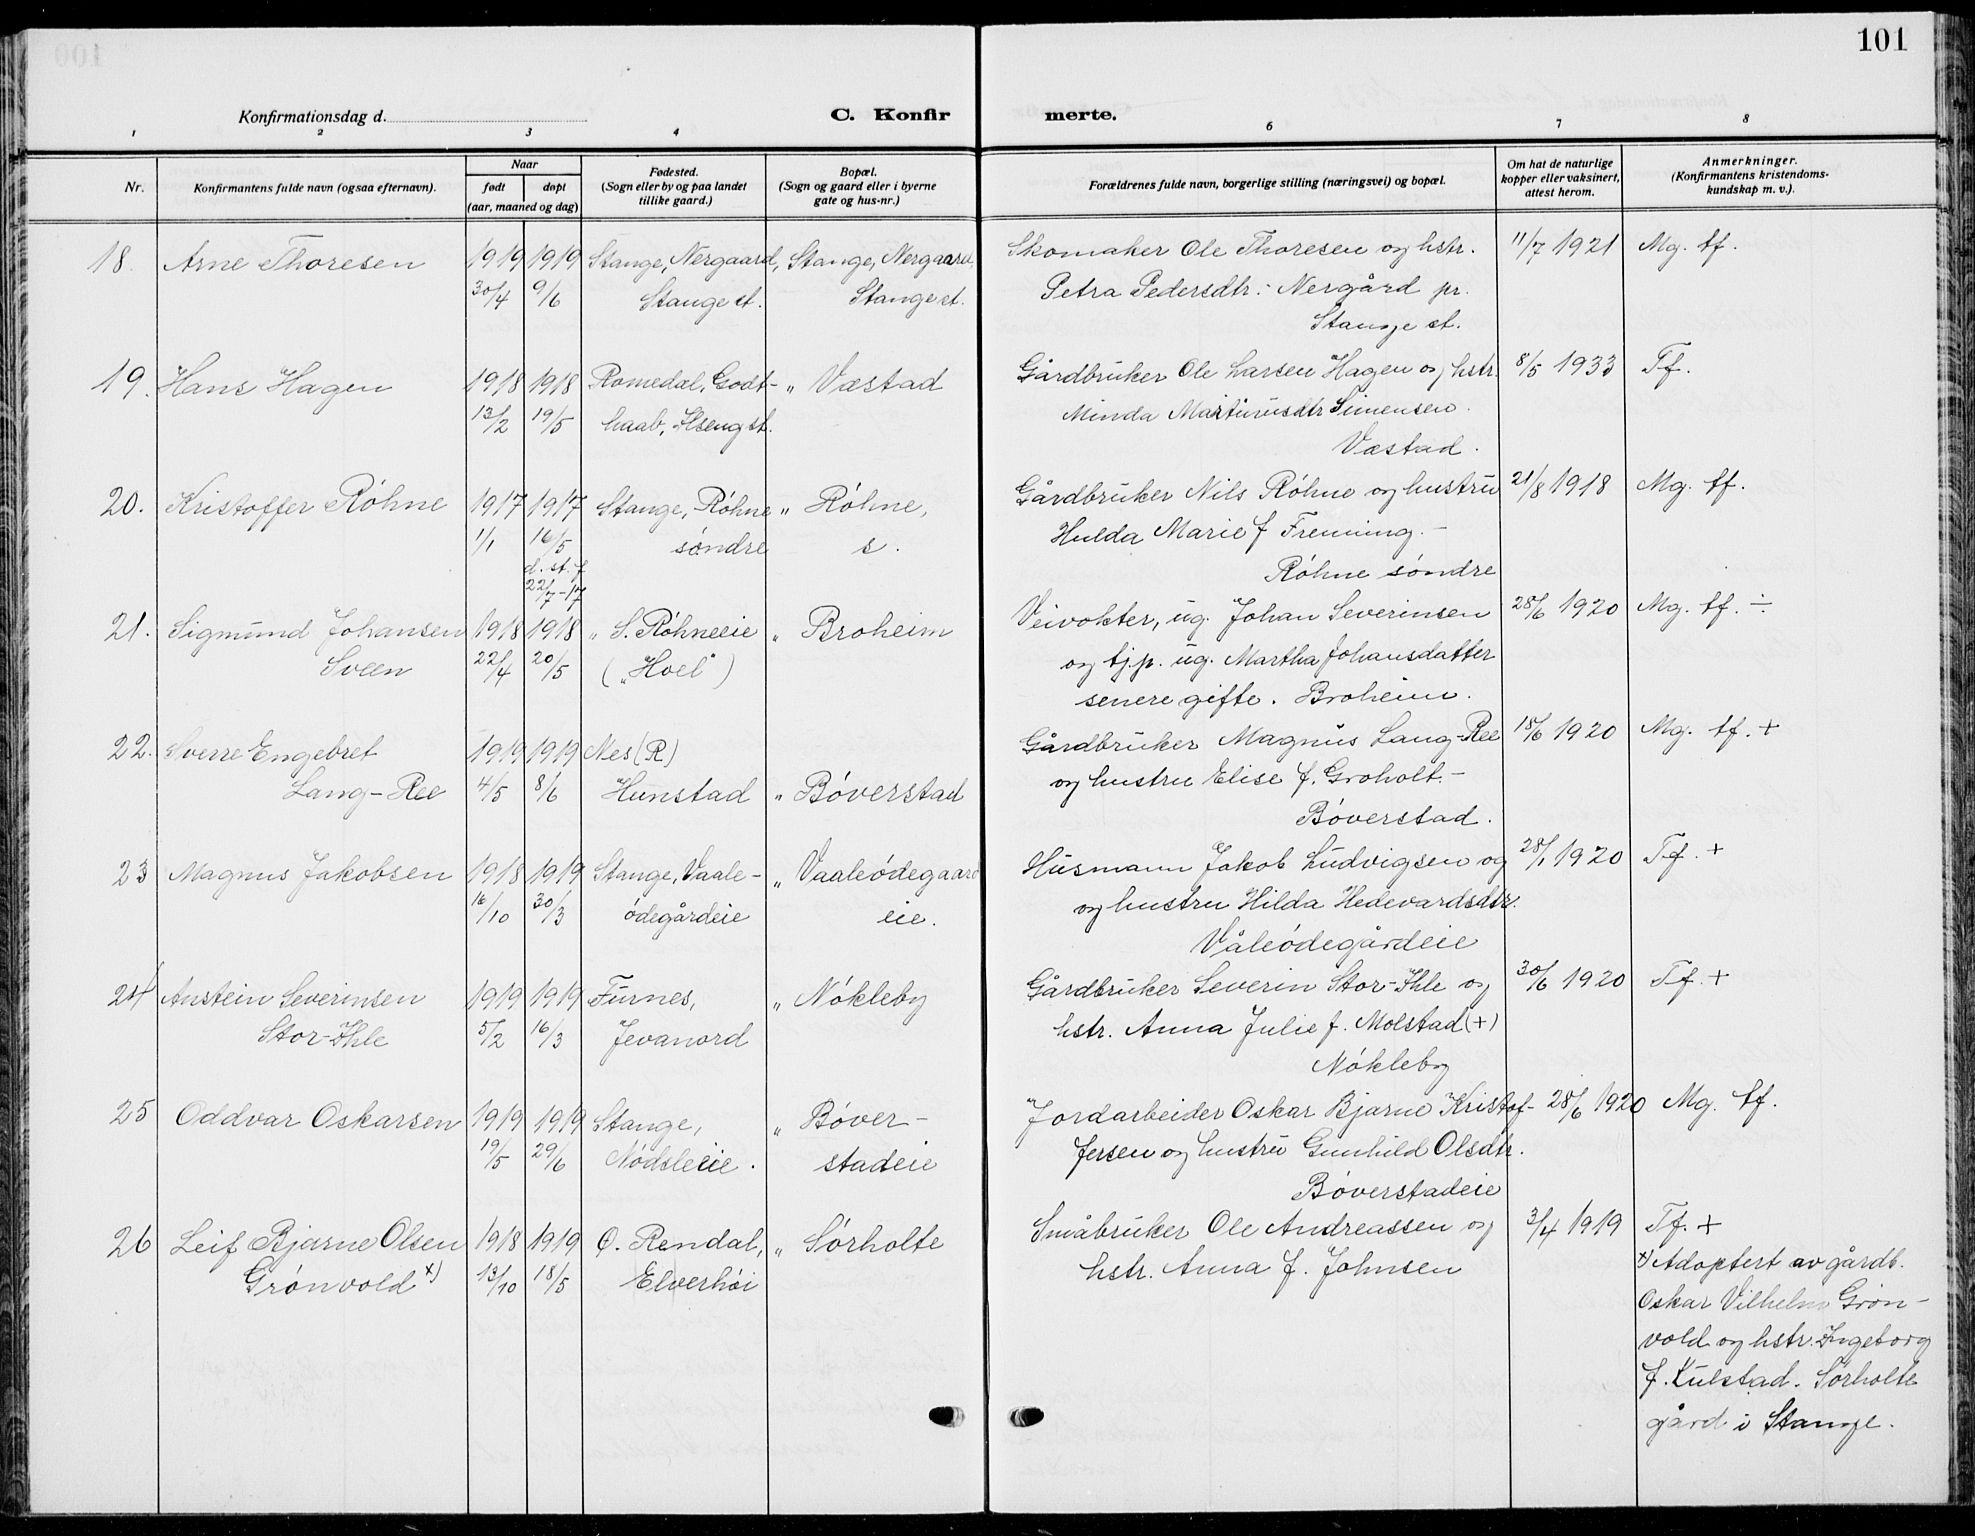 101
Konfirmationsdag d.
C. Konfir
merte.
1 2 3 4 6 7 8
Nr.
Konfirmantens fulde navn (ogsaa efternavn).
Naar
født døpt
(aar, maaned og dag)
Fødested.
(Sogn eller by og paa landet
tillike gaard.)
Bopæl.
(Sogn og gaard eller i byerne
gate og hus-nr.)
Forældrenes fulde navn, borgerlige stilling (næringsvei) og bopæl.
Om hat de naturlige
kopper eller vaksinert,
attest herom.
Anmerkninger.
(Konfirmantens kristendoms-
kundskap m. v.).
18. Arne Thoresen 1919 1919 Stange, Nergaard, Stange, Nergaard, Skomaker Ole Thoresen og hstr. 11/7 1921 Mg. tf.
30/4 9/6 Stange st. Stange st. Petra Pedersdtr. - Nergård pr.
Stange st.
19. Hans Hagen 1918 1918 Romedal, Godt- " Væstad Gårdbruker Ole Larsen Hagen og hstr. 8/5 1933 Tf.
13/2 19/5 haab, Ilseng st. Minda Martinusdtr Simensen.
Væstad.
20. Kristoffer Røhne 1917 1917 Stange, Røhne " Røhne, Gårdbruker Nils Røhne og hustru 21/8 1918 Mg. tf.
1/1 16/5 søndre s. Hulda Marie f Frenning. -
d. st. f
22/7-17 Røhne søndre
21. Sigmund Johansen 1918 1918 " S. Røhneeie " Broheim Veivokter, ug. Johan Severinsen 28/6 1920 Mg. tf. ÷
Sveen 22/4 20/5 ("Hoel") og tjp. ug. Martha Johansdatter
senere gifte. Broheim.
22. Sverre Engebret 1919 1919 Nes (R) Gårdbruker Magnus Lang-Ree 18/6 1920 Mg. tf. +
Lang-Ree 4/5 8/6 Hunstad " Bøverstad og hustru Elise f. Groholt. -
Bøverstad.
23 Magnus Jakobsen 1918 1919 Stange, Vaale- " Vaaleødegaard Husmann Jakob Ludvigsen og 28/1 1920 Tf. +
16/10 30/3 ødegårdeie eie. og hustru Hilda Hedevardsdtr.
Våleødegårdeie
24 Anstein Severinsen 1919 1919 Furnes, " Nøkleby Gårdbruker Severin Stor-Ihle og 30/6 1920 Tf. +
Stor-Ihle 5/2 16/3 Jevanord hstr. Anna Julie f. Molstad (+)
Nøkleby
25 Oddvar Oskarsen 1919 1919 Stange, " Bøver- Jordarbeider Oskar Bjarne Kristof- 28/6 1920 Mg. tf.
19/5 29/6 Nødsleeie. stadeie fersen og hustru Gunhild Olsdtr.
Bøverstadeie
26 Leif Bjarne Olsen 1918 1919 Ø. Rendal, " Sørholte Småbruker Ole Andreassen og 3/4 1919 Tf. +
Grønvold x) 13/10 18/5 Elverhøi hstr. Anna f. Johnsen x) Adoptert av gårdb.
Oskar Vilhelm Grøn-
vold og hstr. Ingeborg
f. Kulstad. Sørholte
gård i Stange.